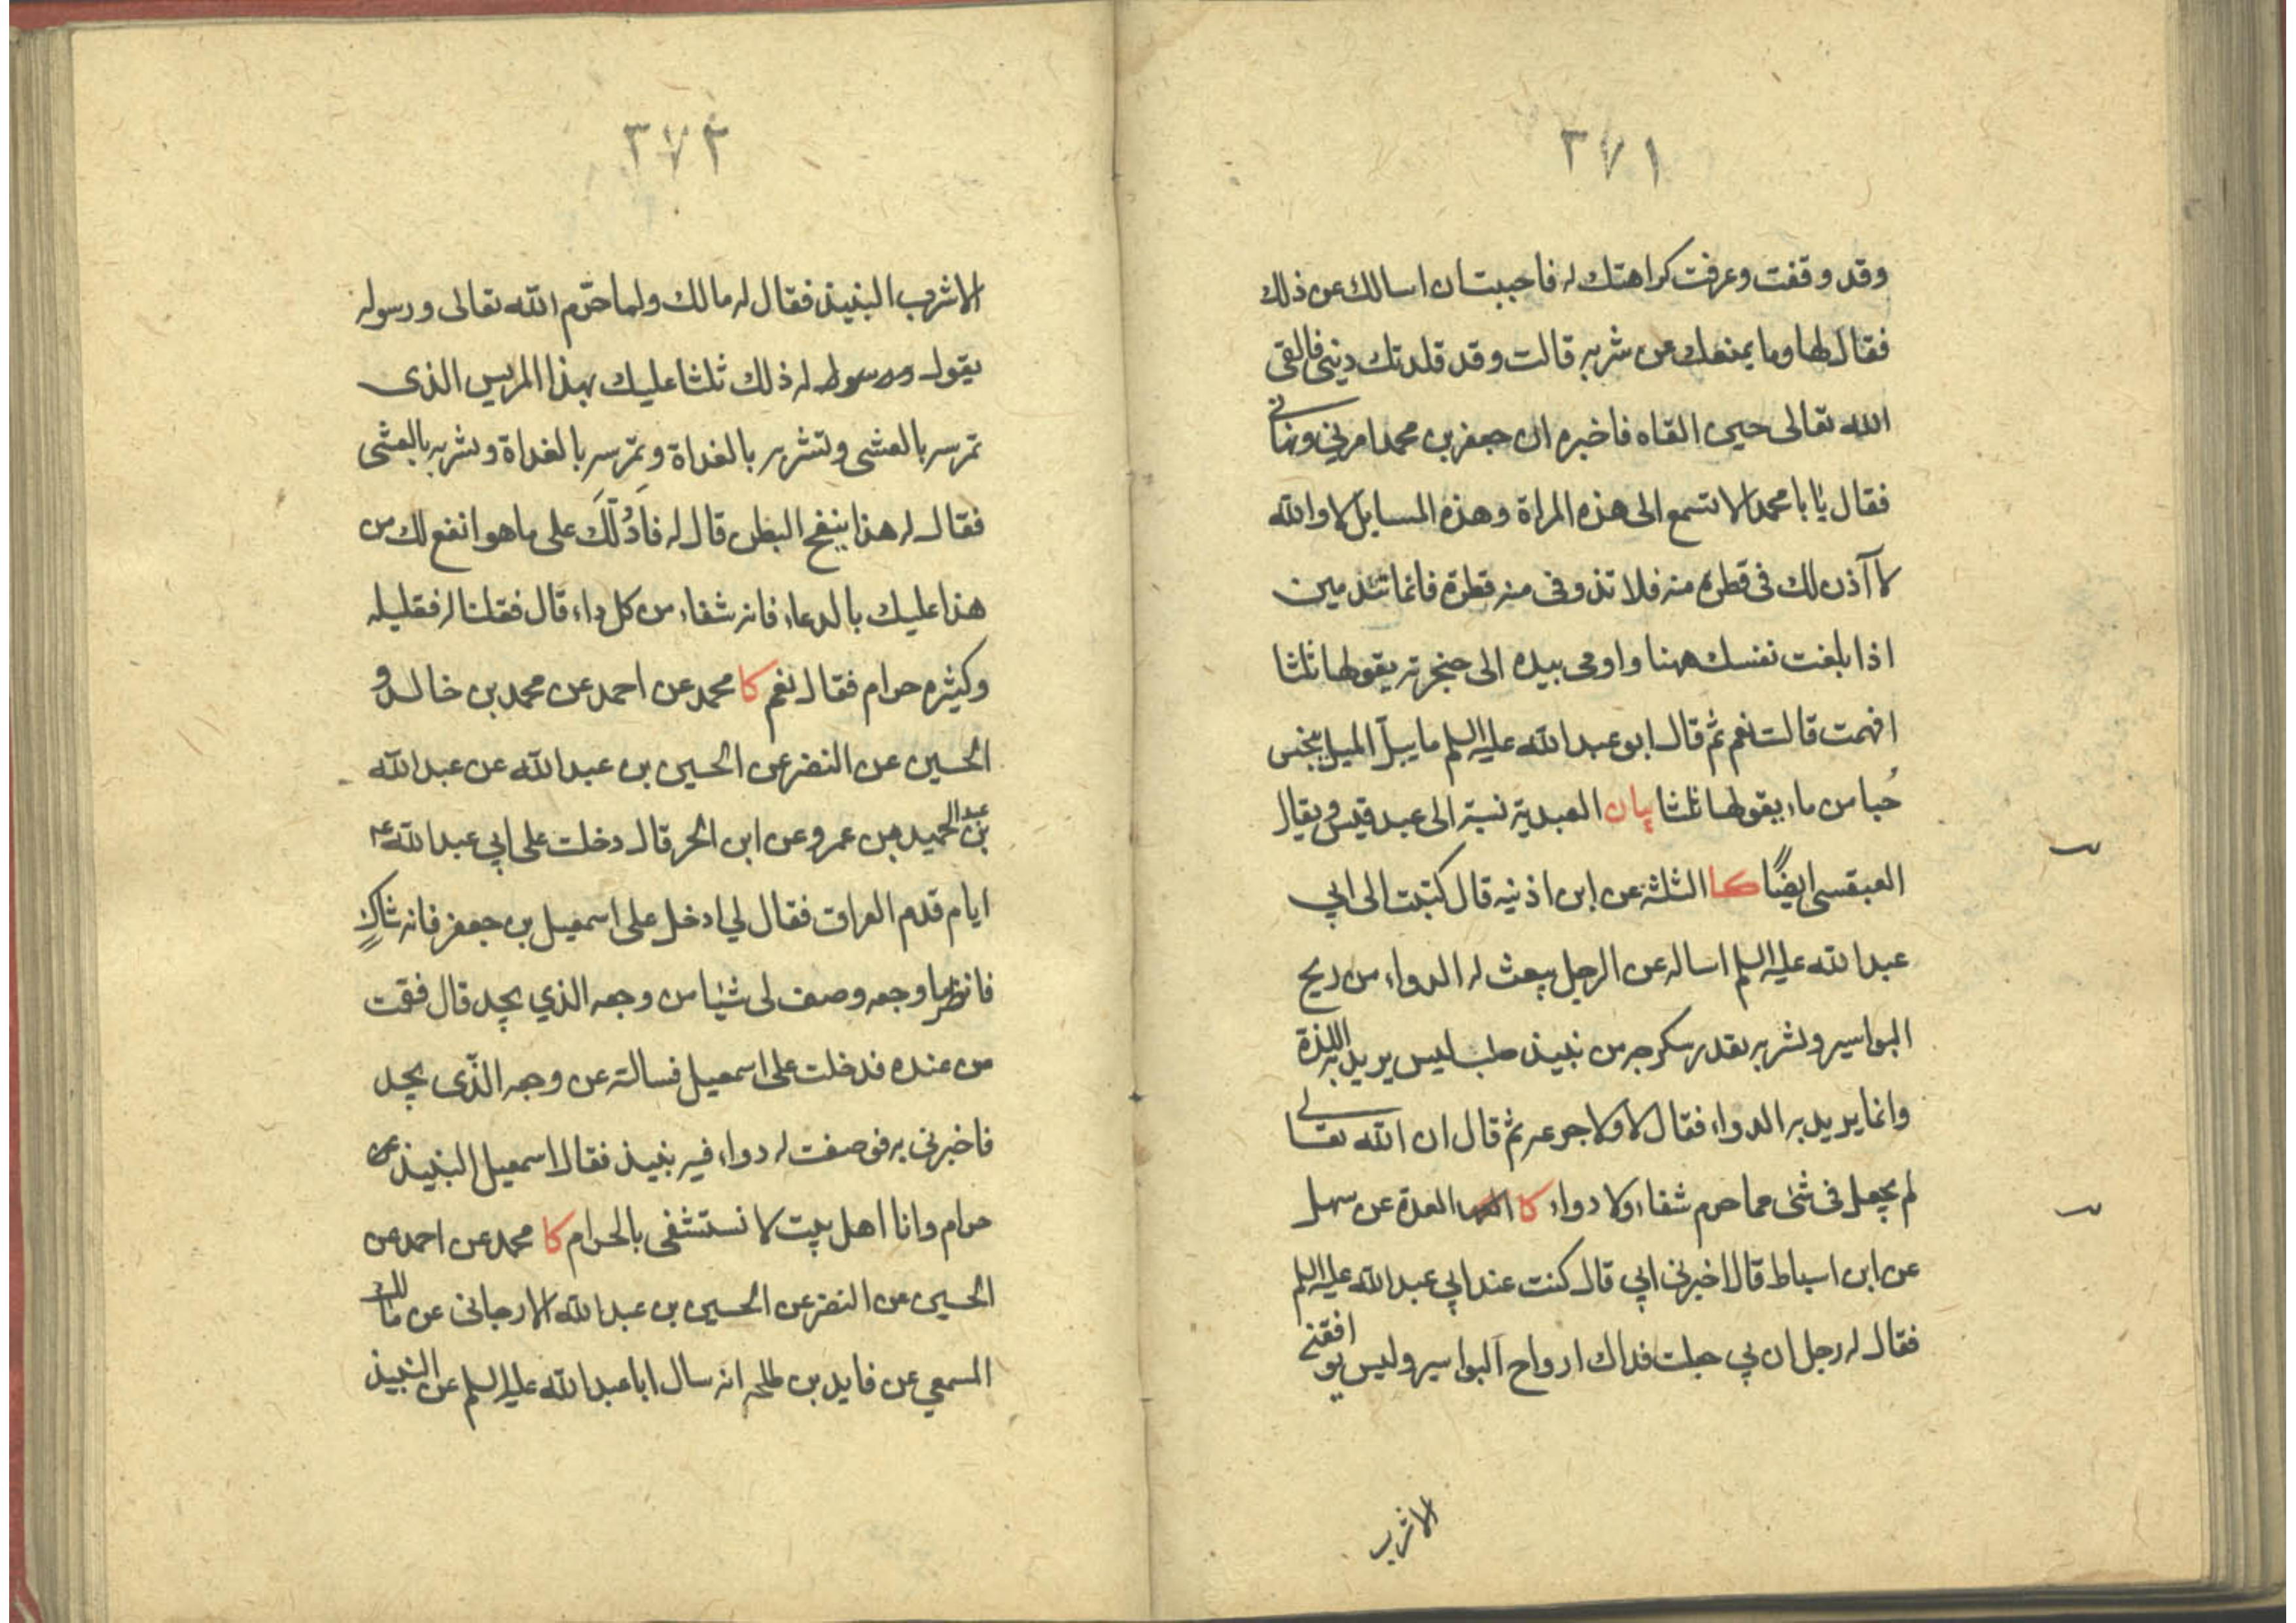 ٣٧١
وقد وقفت وعرفت كراهتك له فاحببت ان اسالك عن ذلك
فقال لها وما يمنعك من شربه قالت وقد قلدتك ديني فالقى
الله تعالى حين القاه فاخبره ان جعفر بن محمد امرني ونهاني
فقال يا با محمد الا تسمع الى هذه المراة وهذه المسايل لا والله
لا آذن لك في قطرة منه فلا تذوقي منه قطرة فانما تندمين
اذا بلغت نفسك ههنا واومى بيده الى حنجرته يقولها ثلثا
افهمت قالت نعم ثم قال ابو عبد الله عليه السلم ما يبل الميل ينجس
حبا من ماء يقولها ثلثا بيان العبدية نسبة الى عبد قيس ويقال
العبقسي ايضًا كا الثلثة عن ابن اذنيه قال كتبت الى ابي
عبد الله عليه السلم اساله عن الرجل يبعث له الدواء من ريح
البواسير ويشربه بقدر سكرجه من نبيذ صلب ليس يريد به اللذة
وانما يريد به الدواء فقال لا ولا جرعه ثم قال ان الله تعالى
لم يجعل في شئ مما حرم شفاء ولا دواء كا العدة عن سهل
عن ابن اسباط قال اخبرني ابي قال كنت عند ابي عبد الله عليه السلم
فقال له رجل ان بي جعلت فداك ارواح البواسير وليس يوافقني
الا شرب
٣٧٢
الا شرب النبيذ فقال له مالك ولما حرّم الله تعالى ورسوله
يقول له ذلك ثلثا عليك بهذا المريس الذي
تمرسه بالعشي وتشربه بالغداة وتمرسه بالغداة وتشربه بالعشي
فقال له هذا ينفخ البطن قال له فادُلّكَ على ما هو انفع لك من
هذا عليك بالدعاء فانه شفاء من كل داء قال فقلنا له فقليله
وكثيره حرام فقال نعم كا محمد عن احمد عن محمد بن خالد و
الحسين عن النضر عن الحسين بن عبد الله عن عبد الله
بن عبد الحميد عن عمرو عن ابن الحر قال دخلت على ابي عبد الله ع
ايام قدم العراق فقال لي ادخل على اسمعيل بن جعفر فانه شاكٍ
فانظر ما وجعه وصف لي شيئا من وجعه الذي يجد قال فقمت
من عنده فدخلت على اسمعيل فسالته عن وجعه الذّي يجد
فاخبرني به فوصفت له دواء فيه نبيذ فقال اسمعيل النبيذ
حرام وانا اهل بيت لا نستشفي بالحرام كا محمد عن احمد عن
الحسين عن النضر عن الحسين بن عبد الله الارجاني عن مالك
المسمعي عن فايد بن طلحه انه سال ابا عبد الله عليه السلم عن النبيذ